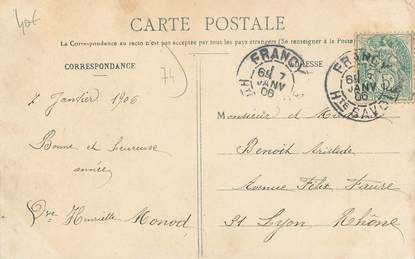 40€
CARTE POSTALE
La Correspondance au recto n'est pas acceptée par tous les pays étrangers (Se renseigner à la Poste)
CORRESPONDANCE
74
FRANGY
69 7
JANV
06
Hte
FRANGY
69 7
JANV
06
Hte SAVOIE
7 Janvier 1906
Bonne et heureuse
année
Vve Henriette Monod
Monsieur et
Benoît Aristide
Avenue Félix Faure
31 Lyon Rhône